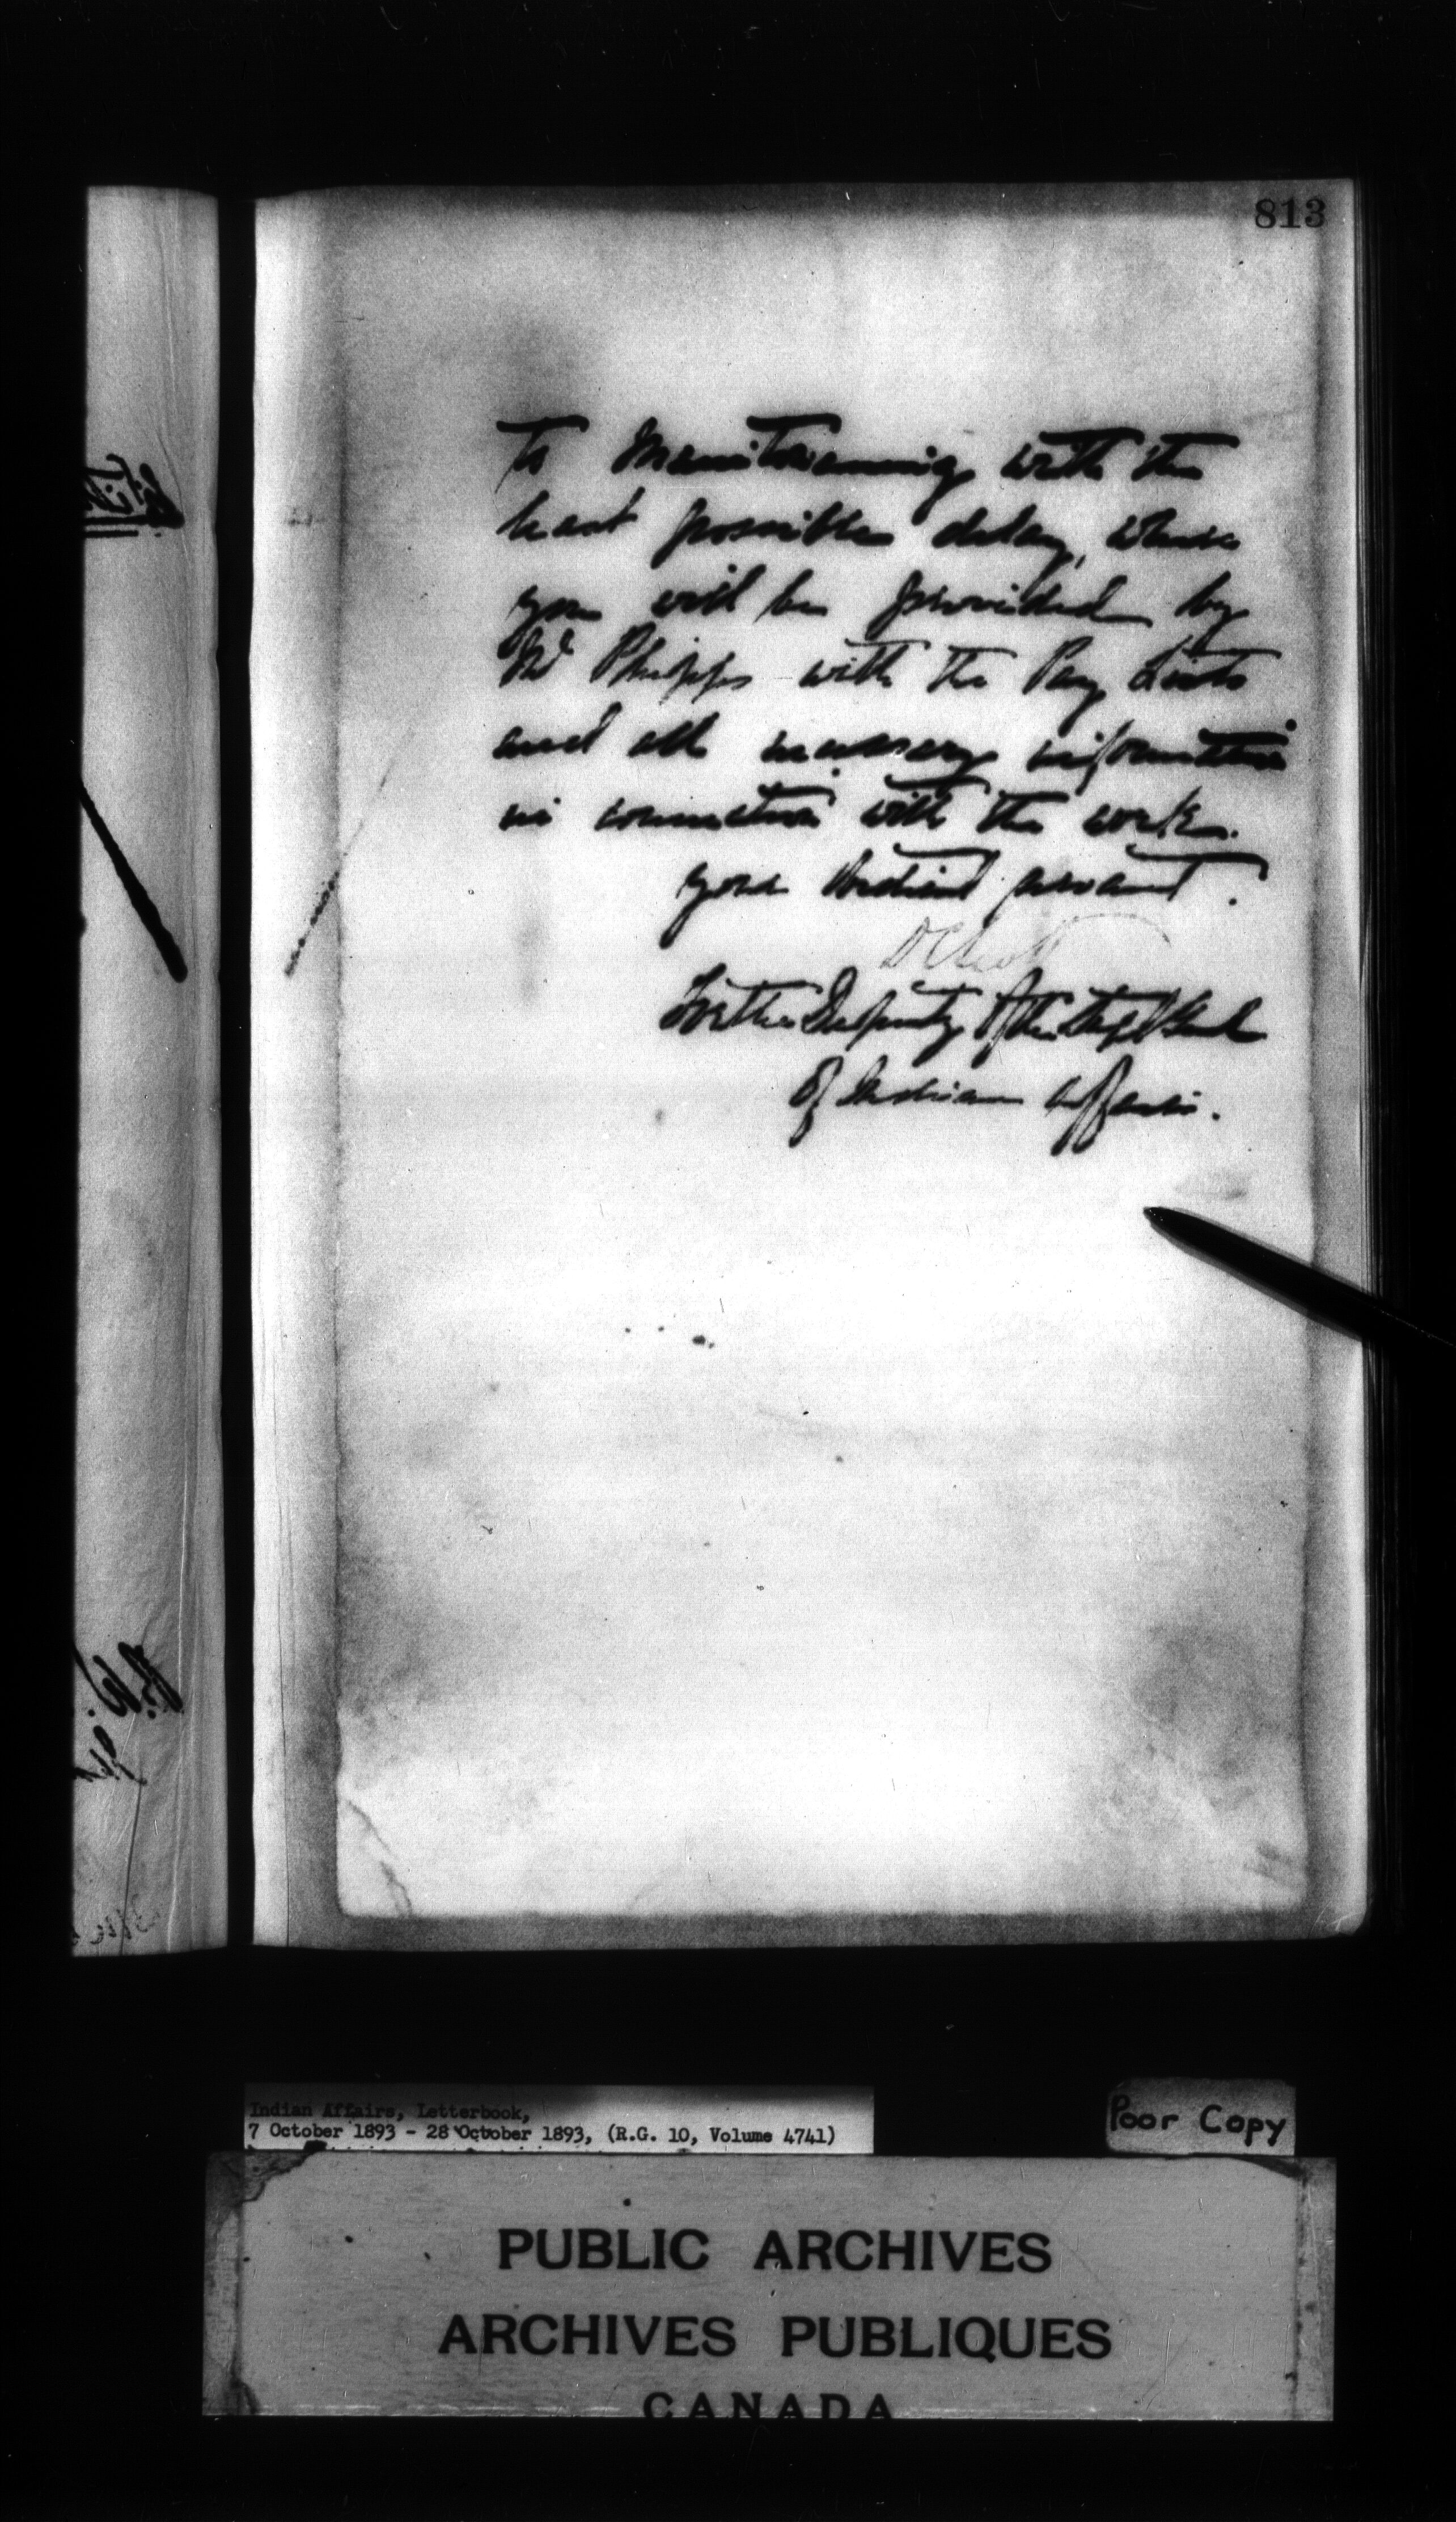 813
to Manitowaning with the
least possible delay, where
you will be provided by
Mr Phipps with the Pay Lists
and all necessary information
in connection with the work.
your obedient servant.
For the Deputy of the Supt Genl
of Indian Affairs.
Indian Affairs, Letterbook,
7 October 1893 - 28 October 1893, (R.G. 10, Volume 4741)
Poor Copy
PUBLIC ARCHIVES
ARCHIVES PUBLIQUES
CANADA